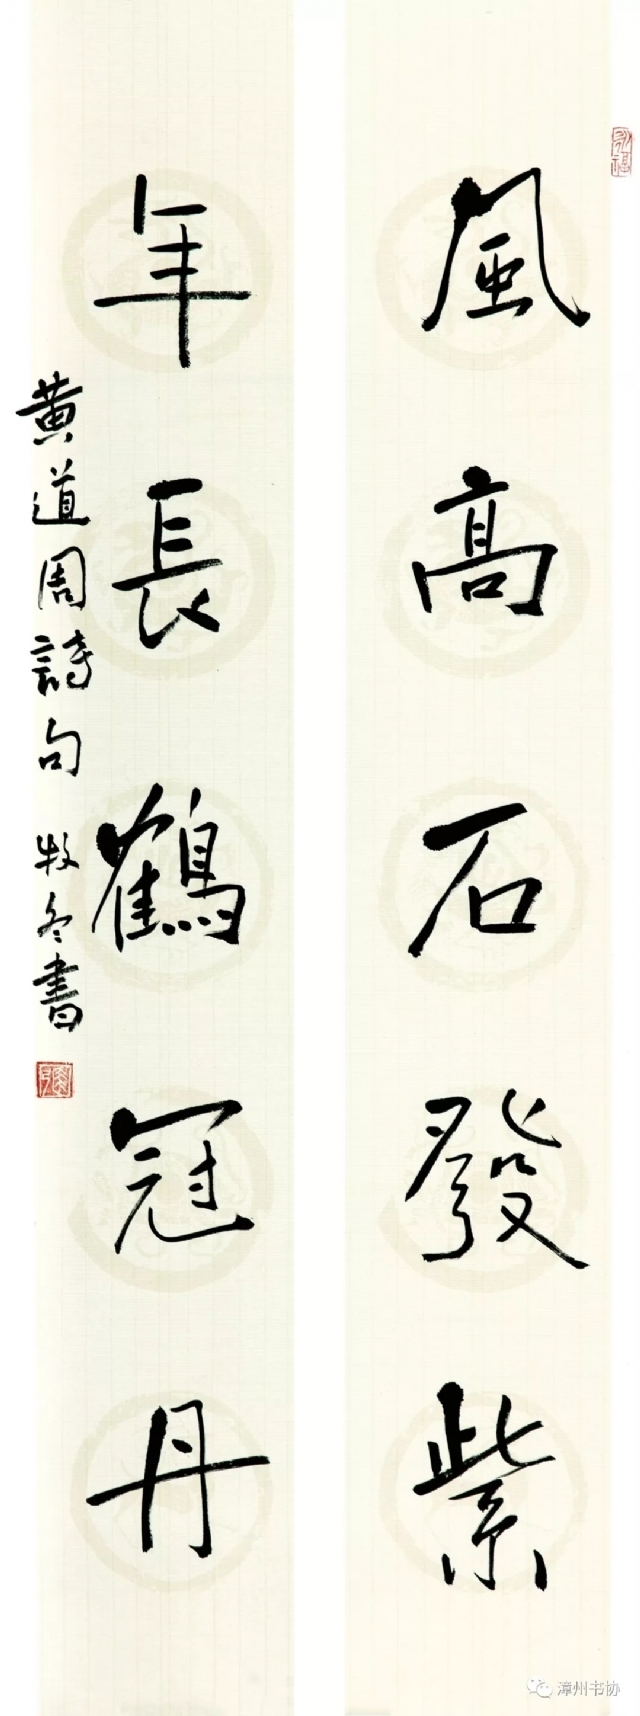 風高石發紫
年長鶴冠丹
黄道周詩句 牧冬書
漳州书协